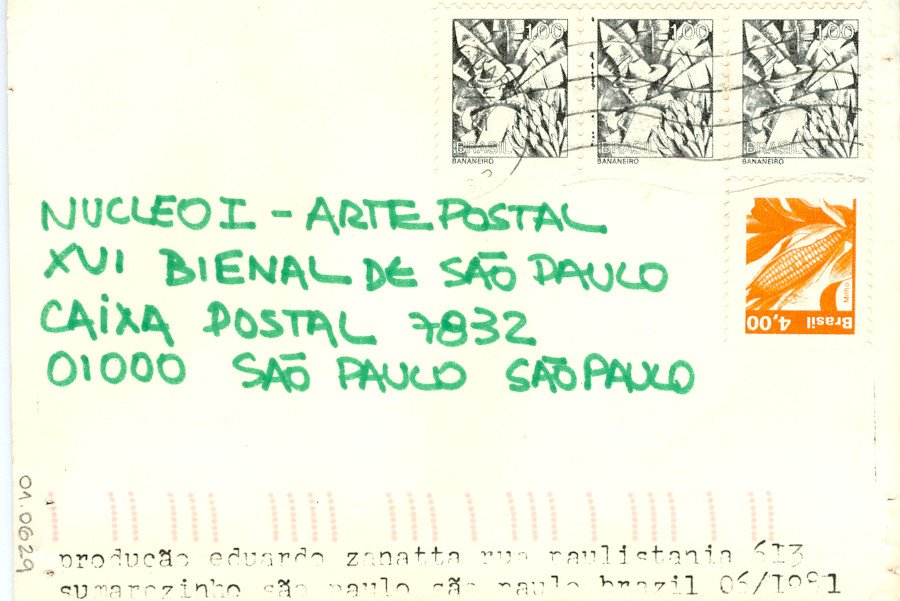 1,00 1,00 1,00
BRASIL BRASIL BRASIL
BANANEIRO BANANEIRO BANANEIRO
NUCLEO I - ARTE POSTAL
XVI BIENAL DE SÃO PAULO
CAIXA POSTAL 7832
01000 SÃO PAULO SÃO PAULO
Milho
Brasil 4,00
01.0629
produção eduardo zanatta rua paulistania 613
sumarezinho são paulo são paulo brazil 06/1981